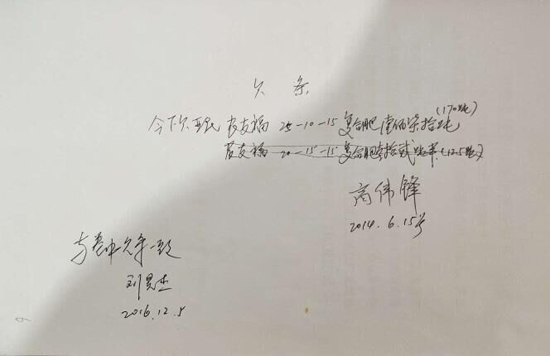 欠条
今欠 农友福 25-10-15 复合肥壹佰柒拾吨(170吨)
农友福 20-15-15 复合肥 拾贰吨半(12.5吨)
高伟锋
2014.6.15号
与卷中欠条一致
刘
2016.12.5